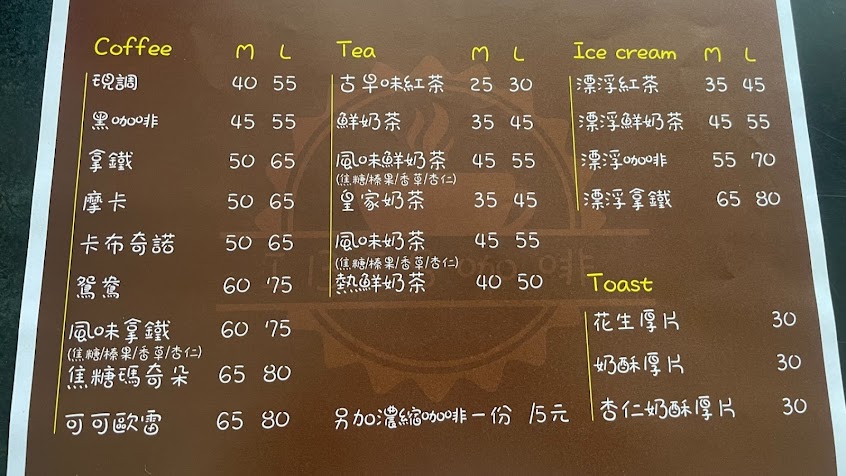 Coffee M L
現調 40 55
黑咖啡 45 55
拿鐵 50 65
摩卡 50 65
卡布奇諾 50 65
鴛鴦 60 75
風味拿鐵 60 75
(焦糖/榛果/香草/杏仁)
焦糖瑪奇朵 65 80
可可歐蕾 65 80
Tea M L
古早味紅茶 25 30
鮮奶茶 35 45
風味鮮奶茶 45 55
(焦糖/榛果/香草/杏仁)
皇家奶茶 35 45
風味奶茶 45 55
(焦糖/榛果/香草/杏仁)
熱鮮奶茶 40 50
另加濃縮咖啡一份 15元
Ice cream M L
漂浮紅茶 35 45
漂浮鮮奶茶 45 55
漂浮咖啡 55 70
漂浮拿鐵 65 80
Toast
花生厚片 30
奶酥厚片 30
杏仁奶酥厚片 30